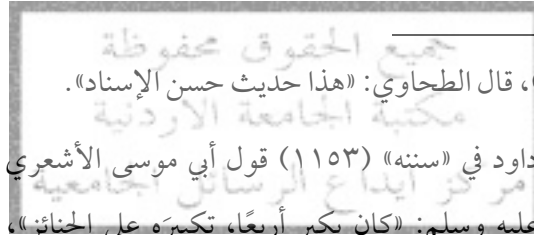 جميع الحقوق محفوظة
، قال الطحاوي: «هذا حديث حسن الإسناد».
مكتبة الجامعة الاردنية
داود في «سننه» (١١٥٣) قول أبي موسى الأشعري
مركز ايداع الرسائل الجامعية
عليه وسلم: «كان يكبر أربعًا، تكبيرَه على الجنائز»،